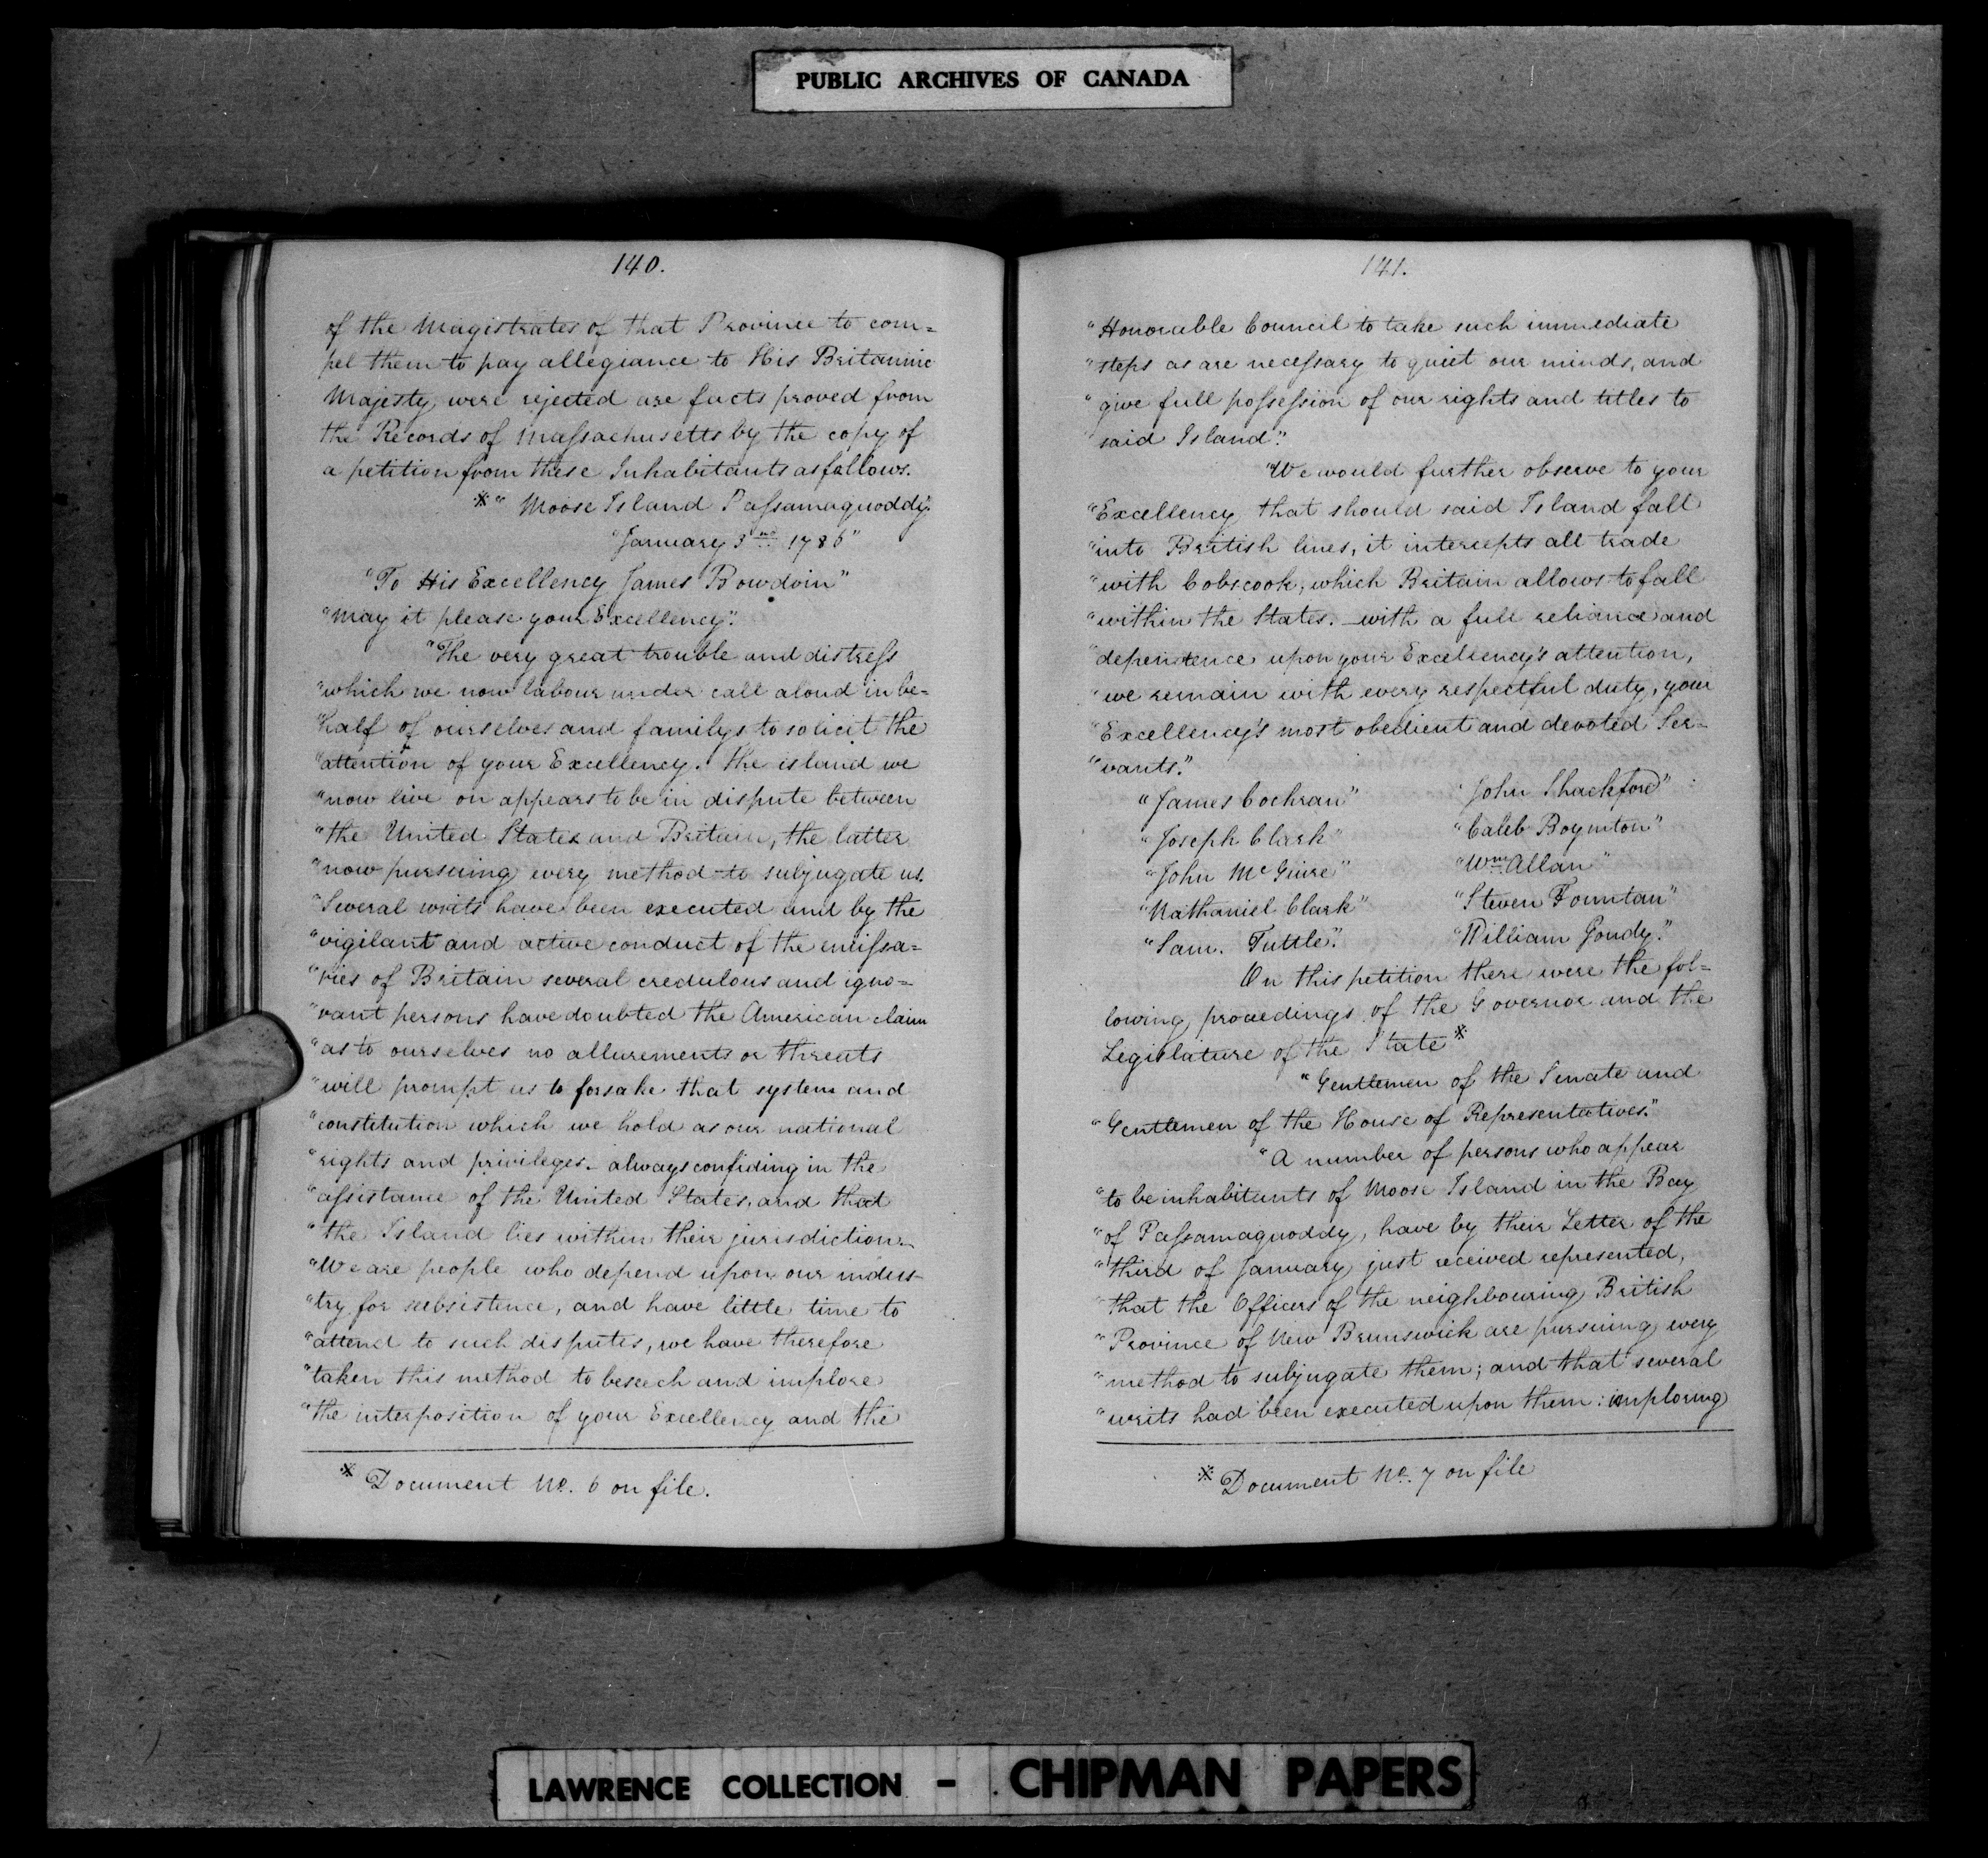 PUBLIC ARCHIVES OF CANADA
140.
of the Magistrates of that Province to com=
pel them to pay allegiance to His Britannic
Majesty were rejected are facts proved from
the Records of Massachusetts by the copy of
a petition from these Inhabitants as follows.
*" Moose Island Passamaquoddy.
"January 3rd 1786"
"To His Excellency James Bowdoin"
"May it please your Excellency".
"The very great trouble and distress
"which we now labour under call aloud in be=
"half of ourselves and familys to solicit the
"attention of your Excellency. The island we
"now live on appears to be in dispute between
"the United States and Britain, the latter
"now pursuing every method to subjugate us.
"Several writs have been executed and by the
"vigilant and active conduct of the emissa=
"ries of Britain several credulous and igno=
"rant persons have doubted the American claim
"as to ourselves no allurements or threats
"will prompt us to forsake that system and
"constitution which we hold as our national
"rights and privileges. always confiding in the
"assistance of the United States, and that
"the Island lies within their jurisdiction.
"We are people who depend upon our indus-
"try for subsistence, and have little time to
"attend to such disputes, we have therefore
"taken this method to beseech and implore
"the interposition of your Excellency and the
* Document No. 6 on file.
141.
"Honorable Council to take such immediate
"steps as are necessary to quiet our minds, and
"give full possession of our rights and titles to
"said Island".
"We would further observe to your
"Excellency that should said Island fall
"into British lines, it intercepts all trade
"with Cobscook, which Britain allows to fall
"within the States. with a full reliance and
"dependence upon your Excellency's attention,
"we remain with every respectful duty, your
"Excellency's most obedient and devoted Ser=
"vants."
"James Cochran" "John Shackford"
"Joseph Clark" "Caleb Boynton"
"John McGuire" "Wm Allan"
"Nathaniel Clark" "Steven Fountan"
"Sam. Tuttle". "William Goudy."
On this petition there were the fol=
lowing proceedings of the Governor and the
Legislature of the State *
"Gentlemen of the Senate and
"Gentlemen of the House of Representatives."
"A number of persons who appear
"to be inhabitants of Moose Island in the Bay
"of Passamaquoddy, have by their Letter of the
"third of January just received represented,
"that the Officers of the neighbouring British
"Province of New Brunswick are pursuing every
"method to subjugate them; and that several
"writs had been executed upon them: imploring
* Document No. 7 on file
LAWRENCE COLLECTION - CHIPMAN PAPERS